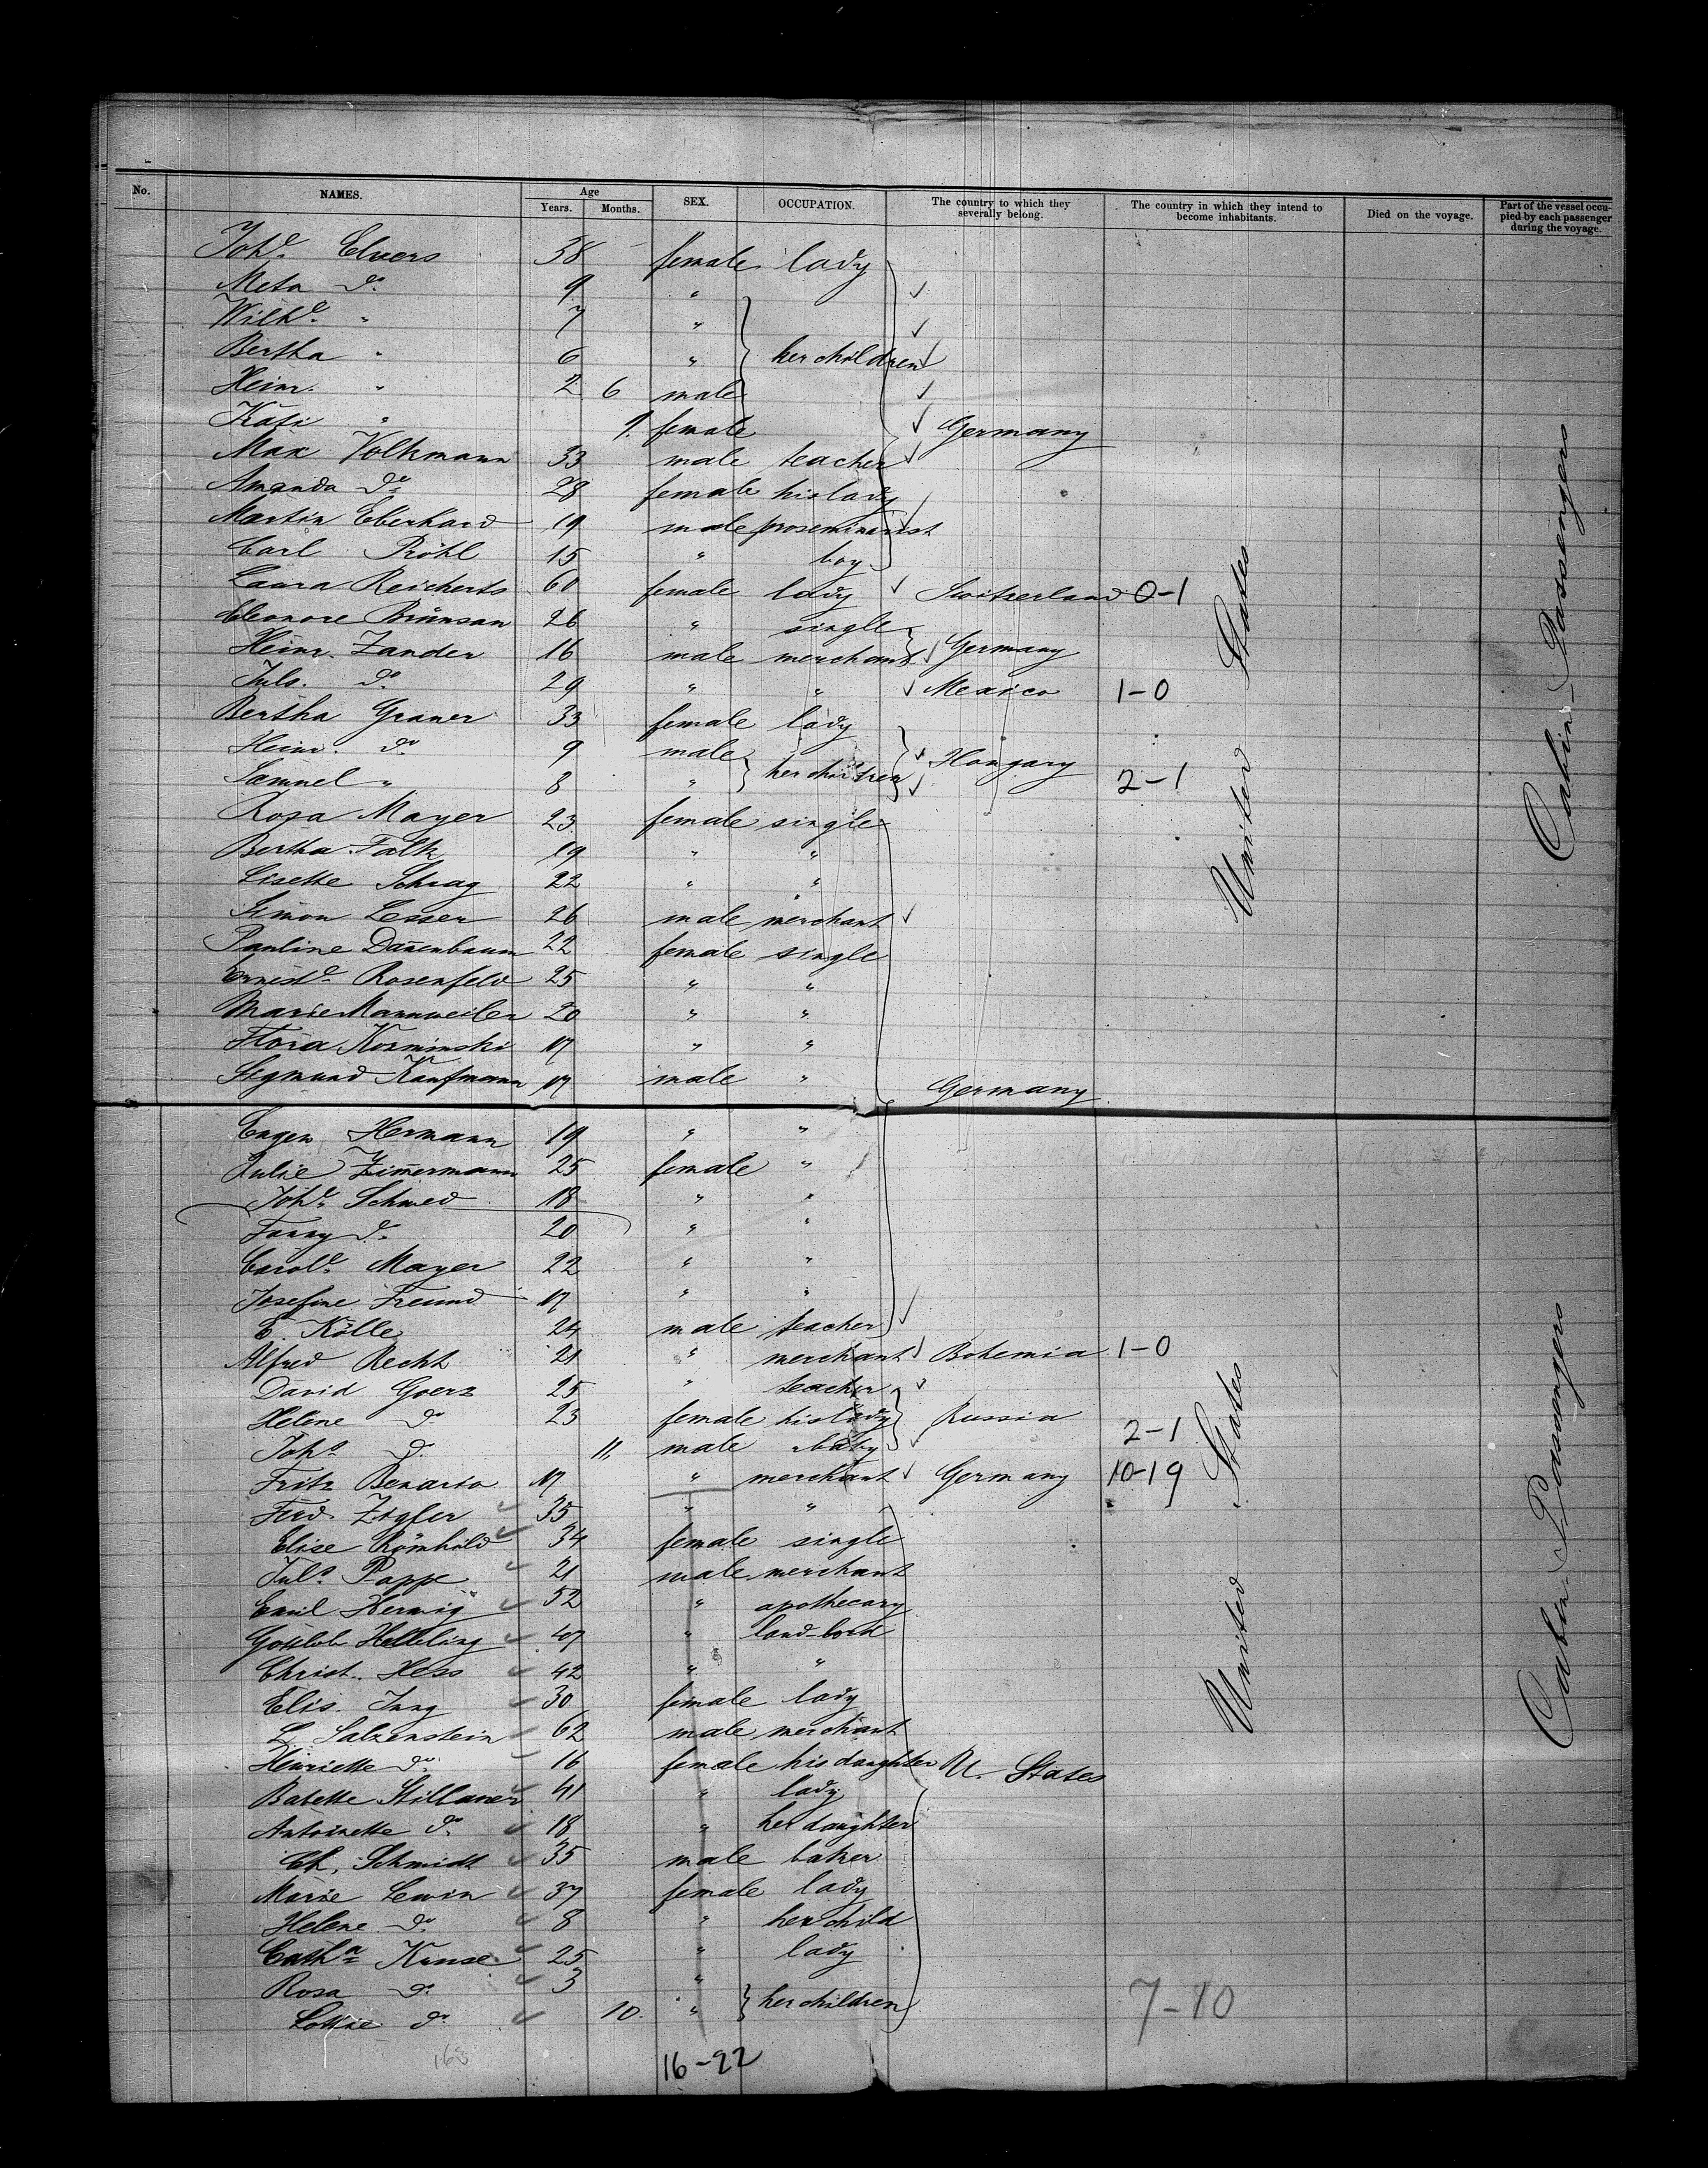 No. NAMES. Age Years. Months. SEX. OCCUPATION. The country to which they severally belong. The country in which they intend to become inhabitants. Died on the voyage. Part of the vessel occupied by each passenger during the voyage.
Johe. Elvers 38 female lady
Meta do. 9 " ✓
Wilhe. " 7 " ✓
Bertha " 6 " her children ✓
Heinr. " 2 6 male ✓
Kati " 9. female ✓ Germany
Max Volkmann 33 male teacher ✓
Amanda do. 28 female his lady
Martin Eberhard 19 male proseminarist
Carl Pröhl 15 " boy
Laura Reicherts 60 female lady ✓ Switzerland 0-1
Eleonore Brünsan 26 " single
Heinr. Zander 16 male merchant ✓ Germany
Juls. do. 29 " " ✓ Mexico 1-0
Bertha Graner 33 female lady
Heinr. do. 9 male ✓ Hongary
Samuel " 8 " her children ✓ 2-1
Rosa Mayer 23 female single
Bertha Falk 19 " "
Lisette Schrag 22 " "
Simon Lesser 26 male merchant ✓
Pauline Dan̄enbaum 22 female single
Ernestе. Rosenfeld 25 " "
Marie Mannweiler 20 " "
Flora Korminski 17 " "
Sigmund Kaufmann 17 male " Germany
Eugen Hermann 19 " "
Julie Zim̄ermann 25 female "
Johe. Schwed 18 " "
Fanny do. 20 " "
Carole. Mayer 22 " "
Josefine Freund 17 " "
E. Kölle 24 male teacher ✓
Alfred Recht 21 " merchant ✓ Bohemia 1-0
David Goerz 25 " teacher ✓
Helene do 23 female his lady Russia
Johs. do. 11. male baby ✓ 2-1
Fritz Benario 17 " merchant ✓ Germany 10-19
Ferd. Zigfer ✓ 35 " "
Elise Römhild ✓ 34 female single
Juls. Pappe ✓ 21 male merchant
Emil Herwig ✓ 52 " apothecary
Gottlob Helleling ✓ 47 "
Christ. Hess ✓ 42 " "
Elis. Jung ✓ 30 female lady
L. Salzenstein ✓ 62 male merchant
Henriette do. ✓ 16 female his daughter U. States
Babette Stillaner ✓ 41 " lady
Antoinette do. ✓ 18 " her daughter
Ch. Schmidt ✓ 35 male baker
Marie Lewin ✓ 37 female lady
Helene do. ✓ 8 " her child
Catha. Kunse ✓ 25 " lady
Rosa do. ✓ 3 "
Lottie do. ✓ 10. " her children 7-10
168 16-22
United States
Cabin Passengers
United States
Cabin Passengers